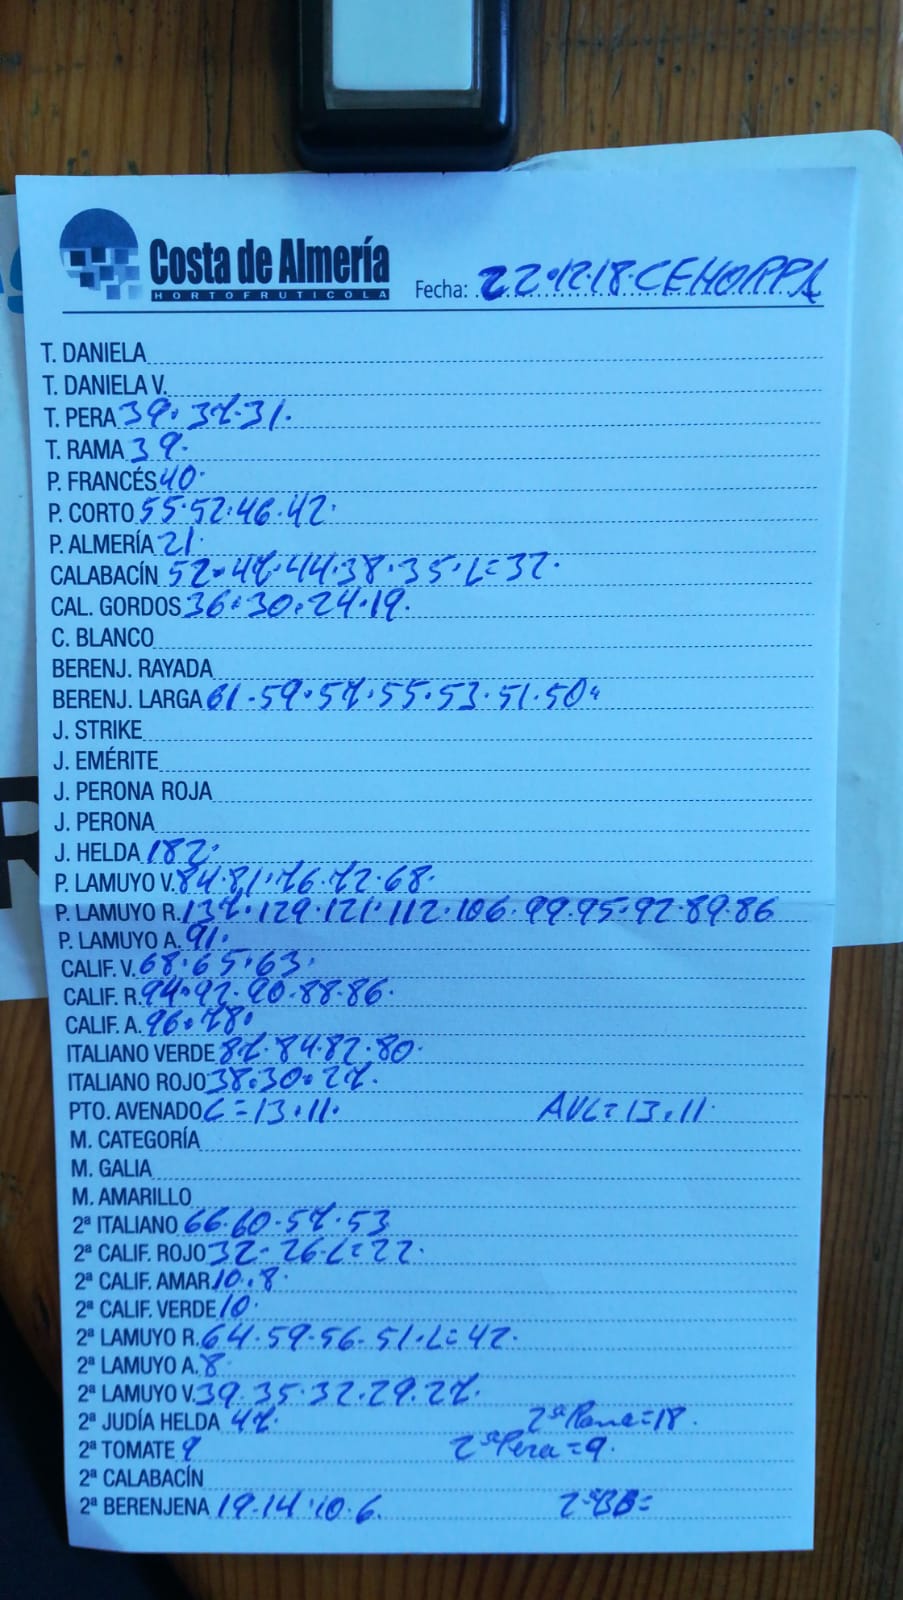 Costa de Almería
HORTOFRUTICOLA
Fecha: 22.12.18.CEHORPA
T. DANIELA
T. DANIELA V.
T. PERA 39.37.31.
T. RAMA 39.
P. FRANCÉS 40.
P. CORTO 55.52.46.42.
P. ALMERÍA 21.
CALABACÍN 52.47.44.38.35.L=32.
CAL. GORDOS 36.30.24.19.
C. BLANCO
BERENJ. RAYADA
BERENJ. LARGA 61.59.57.55.53.51.50.
J. STRIKE
J. EMÉRITE
J. PERONA ROJA
J. PERONA
J. HELDA 182.
P. LAMUYO V. 84.81.76.72.68.
P. LAMUYO R. 137.129.121.112.106.99.95.92.89.86
P. LAMUYO A. 91.
CALIF. V. 68.65.63.
CALIF. R. 94.92.90.88.86.
CALIF. A. 96.78.
ITALIANO VERDE 87.84.82.80.
ITALIANO ROJO 38.30.27.
PTO. AVENADO C=13.11. AVL=13.11.
M. CATEGORÍA
M. GALIA
M. AMARILLO
2ª ITALIANO 66.60.57.53
2ª CALIF. ROJO 32.26.L=22.
2ª CALIF. AMAR 10.8.
2ª CALIF. VERDE 10.
2ª LAMUYO R. 64.59.56.51.L=42.
2ª LAMUYO A. 8.
2ª LAMUYO V. 39.35.32.29.27.
2ª JUDÍA HELDA 47. 2ª Rama=18.
2ª TOMATE 9 2ª Pera=9.
2ª CALABACÍN
2ª BERENJENA 19.14.10.6. 2ªBB=